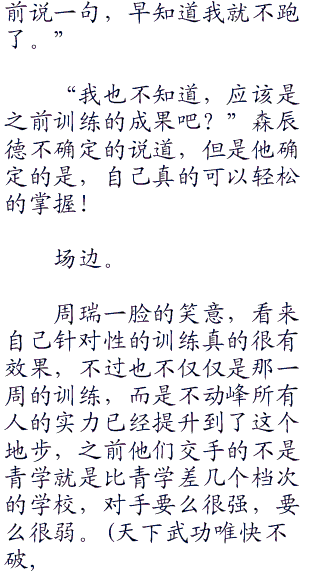 前说一句，早知道我就不跑
了。”
“我也不知道，应该是
之前训练的成果吧？”森辰
德不确定的说道，但是他确
定的是，自己真的可以轻松
的掌握！
场边。
周瑞一脸的笑意，看来
自己针对性的训练真的很有
效果，不过也不仅仅是那一
周的训练，而是不动峰所有
人的实力已经提升到了这个
地步，之前他们交手的不是
青学就是比青学差几个档次
的学校，对手要么很强，要
么很弱。(天下武功唯快不
破,